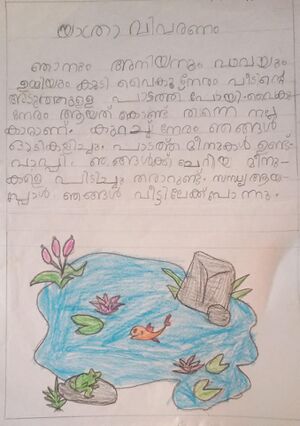 യാത്രാ വിവരണം
ഞാനും അനിയനും വാവയും
ഉമ്മിയും കൂടി വൈകുന്നേരം വീടിന്റെ
അടുത്തുള്ള പാടത്ത് പോയി. വൈകു
ന്നേരം ആയത് കൊണ്ട് തന്നെ നല്ല
കാറ്റാണ്. കുറച്ച് നേരം ഞങ്ങൾ
ഓടികളിച്ചും. പാടത്ത് മീനുകൾ ഉണ്ട്.
ഞങ്ങൾക്ക് ചെറിയ മീനു
കളെ പിടിച്ചും തരാറുണ്ട്. സന്ധ്യ ആയ
പ്പോൾ ഞങ്ങൾ വീട്ടിലേക്ക് പോന്നു.